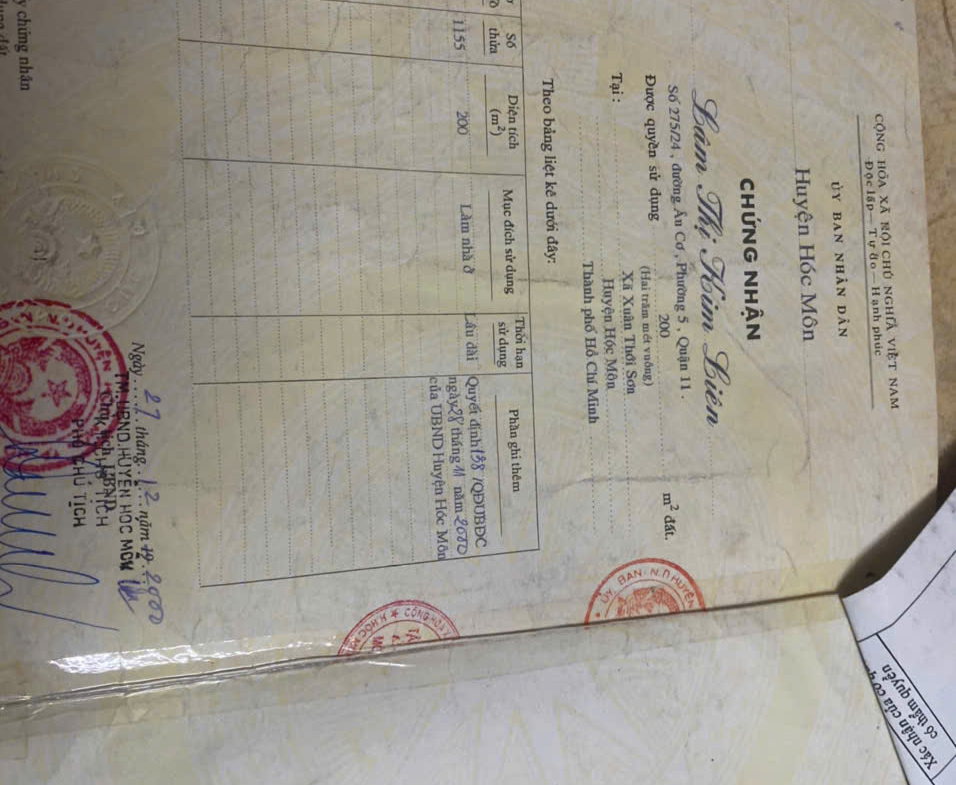 CỘNG HÒA XÃ HỘI CHỦ NGHĨA VIỆT NAM
Độc lập – Tự do – Hạnh phúc
ỦY BAN NHÂN DÂN
Huyện Hóc Môn
CHỨNG NHẬN
Lâm Thị Kim Liên
Số 275/24 , đường Âu Cơ , Phường 5 , Quận 11 .
Được quyền sử dụng 200 m² đất.
(Hai trăm mét vuông)
Tại : Xã Xuân Thới Sơn
Huyện Hóc Môn
Thành phố Hồ Chí Minh
Theo bảng liệt kê dưới đây:
Số thửa
Diện tích (m²)
Mục đích sử dụng
Thời hạn sử dụng
Phần ghi thêm
1155 200 Làm nhà ở Lâu dài Quyết định 138 /QĐUBĐC
ngày 28 tháng 11 năm 2000
của UBND Huyện Hóc Môn
Ngày 27 tháng 12 năm 2000
TM. UBND HUYỆN HÓC MÔN
PHÓ CHỦ TỊCH
ỦY BAN N.D HUYỆN
CỘNG HÒA
H HÓC
y chứng nhận
dụng đất
Xác nhận của cơ q
có thẩm quyền